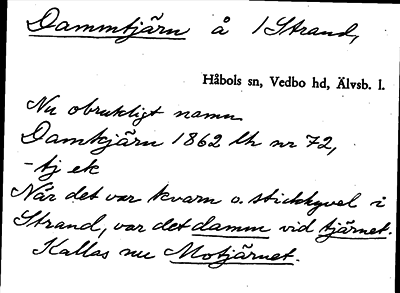 Dammtjärn å 1 Strand,
Håbols sn, Vedbo hd, Älvsb. l.
Nu obrukligt namn
Damkjärn 1862 lh nr 72,
-tj ek
När det var kvarn o. stickhyvel i
Strand, var det damm vid tjärnet.
Kallas nu Motjärnet.